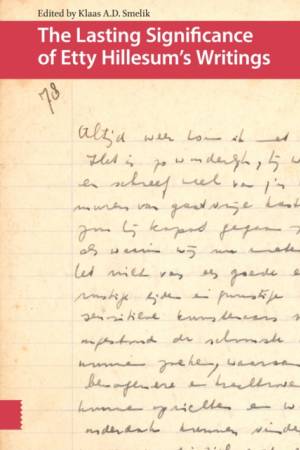 Edited by Klaas A.D. Smelik
The Lasting Significance
of Etty Hillesum's Writings
73
Altijd weer kom ik met
Het is zo wonderlijk, hij w
en schreef veel van z'n
muren van gastvrije kast
zou hij kapot gegaan z
als waarin wij nu moeten
het niet van een goede e
rustige tijden en gunstige
sensitieve kunstenaars
ongestoord de schoonste
kunnen zoeken, waaraan
bewogener en krachtrove
kunnen oprichten en w
onderdak kunnen vinden